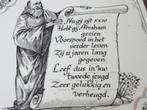 Nu gij zijt xx xx
Hebt gij Abraham
gezien
Voorspoed in het
verder leven
Zij u jaren lang
gegeven
Leef dus in uw
tweede jeugd
Zeer gelukkig en
verheugd.